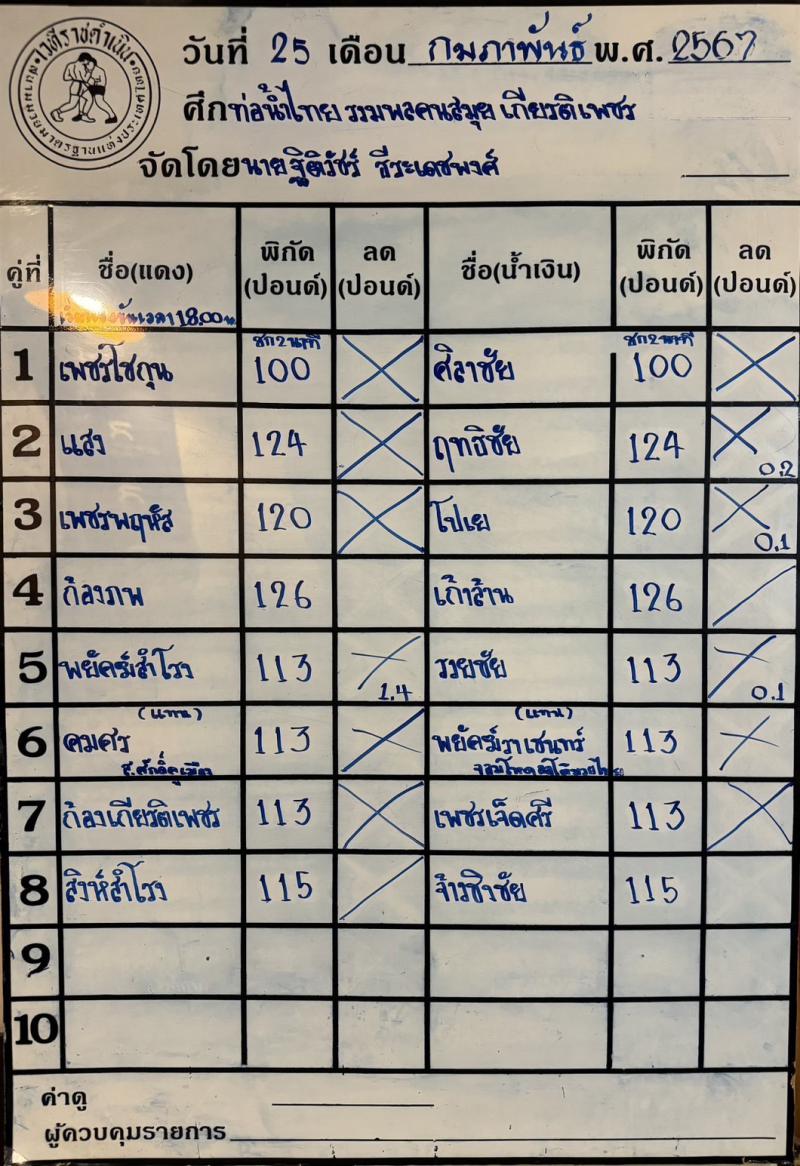 เวทีราชดำเนิน
สนามมวยมาตรฐานแห่งประเทศไทย
วันที่ 25 เดือน กุมภาพันธ์ พ.ศ. 2567
ศึกท่อน้ำไทย รวมพลคนสมุย เกียรติเพชร
จัดโดยนายฐิติวัชร์ ธีระเดชพงศ์
คู่ที่ ชื่อ(แดง) พิกัด (ปอนด์) ลด (ปอนด์) ชื่อ(น้ำเงิน) พิกัด (ปอนด์) ลด (ปอนด์)
เวลา 18.00 น
ชก 2 นาที ชก 2 นาที
1 เพชรโชกุน 100 ศิลาชัย 100
2 แสง 124 ฤทธิชัย 124 0.2
3 เพชรพฤหัส 120 โปเย 120 0.1
4 ก้องภพ 126 เก้าล้าน 126
5 พยัคฆ์สำโรง 113 1.4 รวยชัย 113 0.1
(แทน) (แทน)
6 คมศร 113 พยัคฆ์ราเชนทร์ 113
7 ก้องเกียรติเพชร 113 เพชรเจ็ดศรี 113
8 สิงห์สำโรง 115 จ้าวชิงชัย 115
9
10
ค่าดู
ผู้ควบคุมรายการ